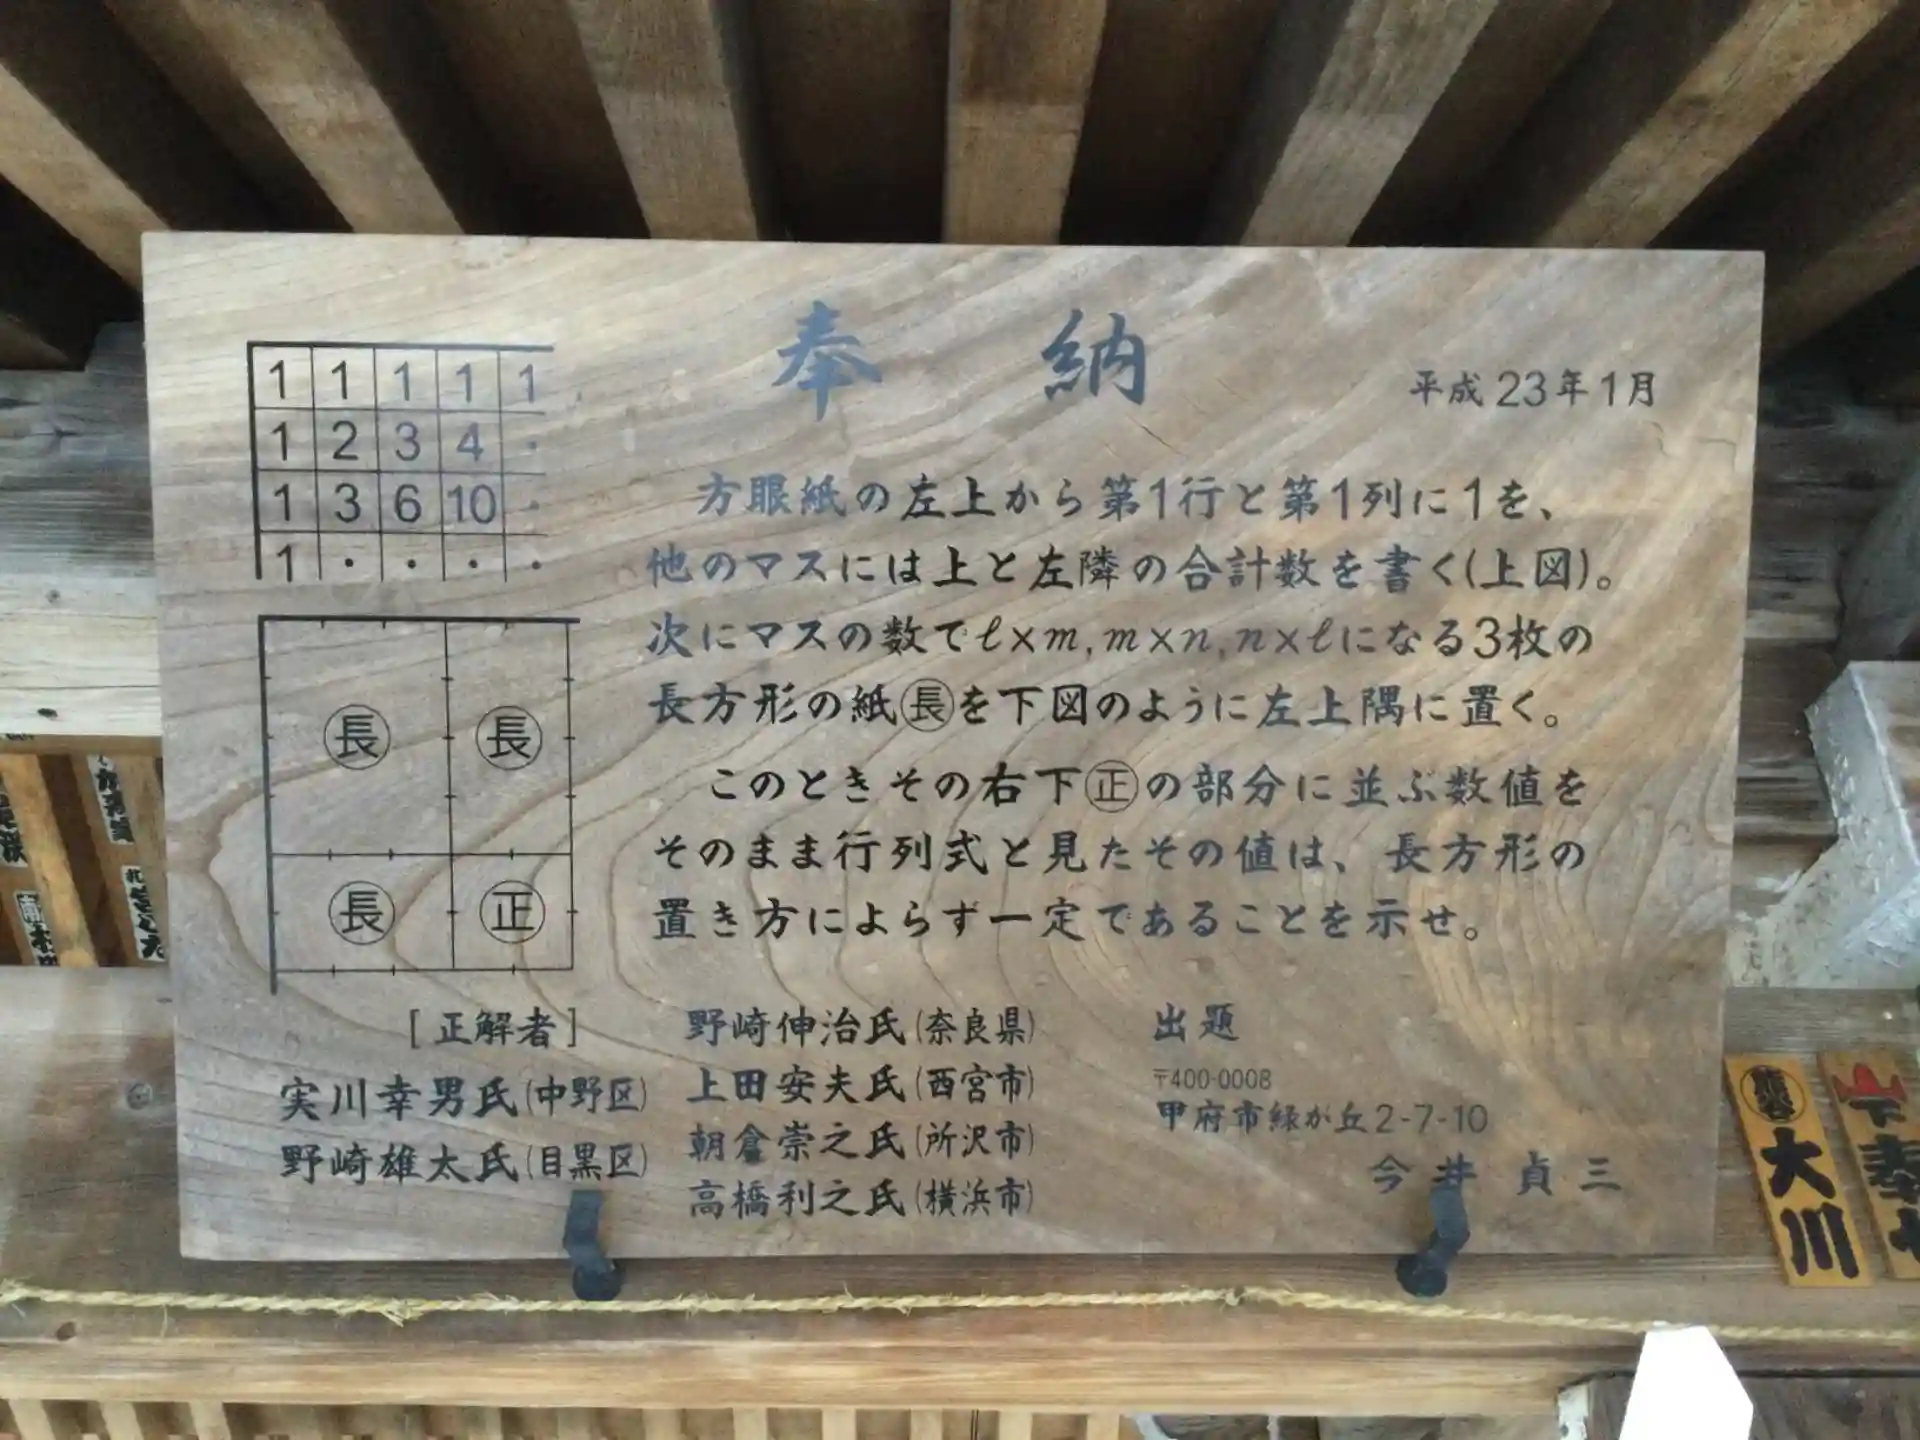 奉納
平成23年1月
1 1 1 1 1
1 2 3 4 ・
1 3 6 10 ・
1 ・ ・ ・ ・
方眼紙の左上から第1行と第1列に1を、
他のマスには上と左隣の合計数を書く(上図)。
次にマスの数でℓ×m,m×n,n×ℓになる3枚の
長方形の紙㊐を下図のように左上隅に置く。
このときその右下㊣の部分に並ぶ数値を
そのまま行列式と見たその値は、長方形の
置き方によらず一定であることを示せ。
長 長
長 正
[正解者]
実川幸男氏(中野区)
野崎雄太氏(目黒区)
野崎伸治氏(奈良県)
上田安夫氏(西宮市)
朝倉崇之氏(所沢市)
高橋利之氏(横浜市)
出題
〒400-0008
甲府市緑が丘2-7-10
今井貞三
大川